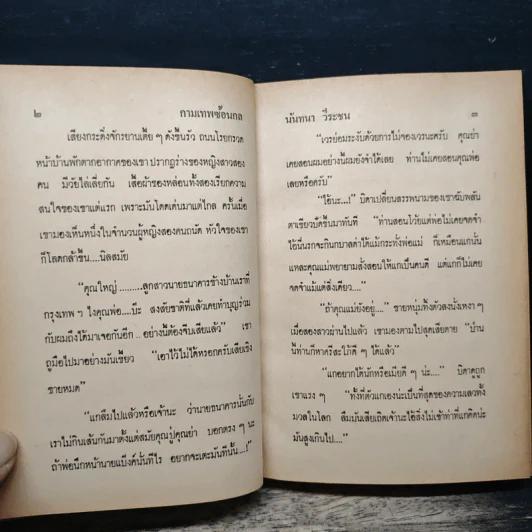 ๒ กามเทพซ้อนกล
เสียงกระดิ่งจักรยานเตี้ย ๆ ดังขึ้นรัว ถนนโรยกรวด
หน้าบ้านพักตากอากาศของเขา ปรากฏร่างของหญิงสาวสอง
คน มีวัยไล่เลี่ยกัน เสื้อผ้าของหล่อนทั้งสองเรียกความ
สนใจของเขาแต่แรก เพราะมันโดดเด่นมาแต่ไกล ครั้นเมื่อ
เขามองเห็นหนึ่งในจำนวนผู้หญิงสองคนถนัด หัวใจของเขา
ก็โลดกล้าขึ้น....นิลสมัย
"คุณใหญ่ ........ลูกสาวนายธนาคารข้างบ้านเราที่
กรุงเทพ ๆ ไงคุณพ่อ....บ๊ะ สงสัยชาติที่แล้วเคยทำบุญร่วม
กับผมถึงได้มาเจอกันอีก .. อย่างนี้ต้องจีบเสียแล้ว" เขา
ถูมือไปมาอย่างมันเขี้ยว "เอาไว้ไม่ได้หรอกครับเสียเชิง
ชายหมด"
"แกลืมไปแล้วหรือเจ้านะ ว่านายธนาคารนั่นกับ
เราไม่กินเส้นกันมาตั้งแต่สมัยคุณปู่คุณย่า บอกตรง ๆ นะ
ถ้าพ่อนึกหน้านายแบ็งค์นั่นทีไร อยากจะเตะมันทีนั้น....!"
นันทนา วีระชน ๓
"เวรย่อมระงับด้วยการไม่จองเวรนะครับ คุณย่า
เคยสอนผมอย่างนี้ผมยังจำได้เลย ท่านไม่เคยสอนคุณพ่อ
เลยหรือครับ"
"ไอ้นะ....!" บิดาเปลี่ยนสรรพนามของเขาฉับพลัน
ตาเขียวปั๊ดขึ้นมาทันที "ท่านสอนโว้ยแต่พ่อไม่เคยจดจำ
ไอ้นี่นรกจะกินกบาลด่าได้แม้กระทั่งพ่อแม่ ก็เหมือนแกนั่น
แหละคุณแม่พยายามสั่งสอนให้แกเป็นคนดี แต่แกก็ไม่เคย
จดจำแม้แต่สิ่งเดียว...."
"ถ้าคุณแม่ยังอยู่...." ชายหนุ่มทิ้งตัวลงนั่งเหงา ๆ
เมื่อสองสาวผ่านไปแล้ว เขามองตามไปสุดเสียดาย "บ้าน
นี้ท่านก็หาครีสะใภ้ดี ๆ ได้แล้ว"
"แกอยากได้นักหรือเมียดี ๆ น่ะ...." บิดาดูถูก
เขาแรง ๆ "ทั้งที่ตัวแกเองน่ะเป็นที่สุดของความเลวทั้ง
มวลในโลก ลืมมันเสียเถิดเจ้านะไอ้สิ่งไม่เข้าท่าที่แกคิดน่ะ
มันสูงเกินไป...."